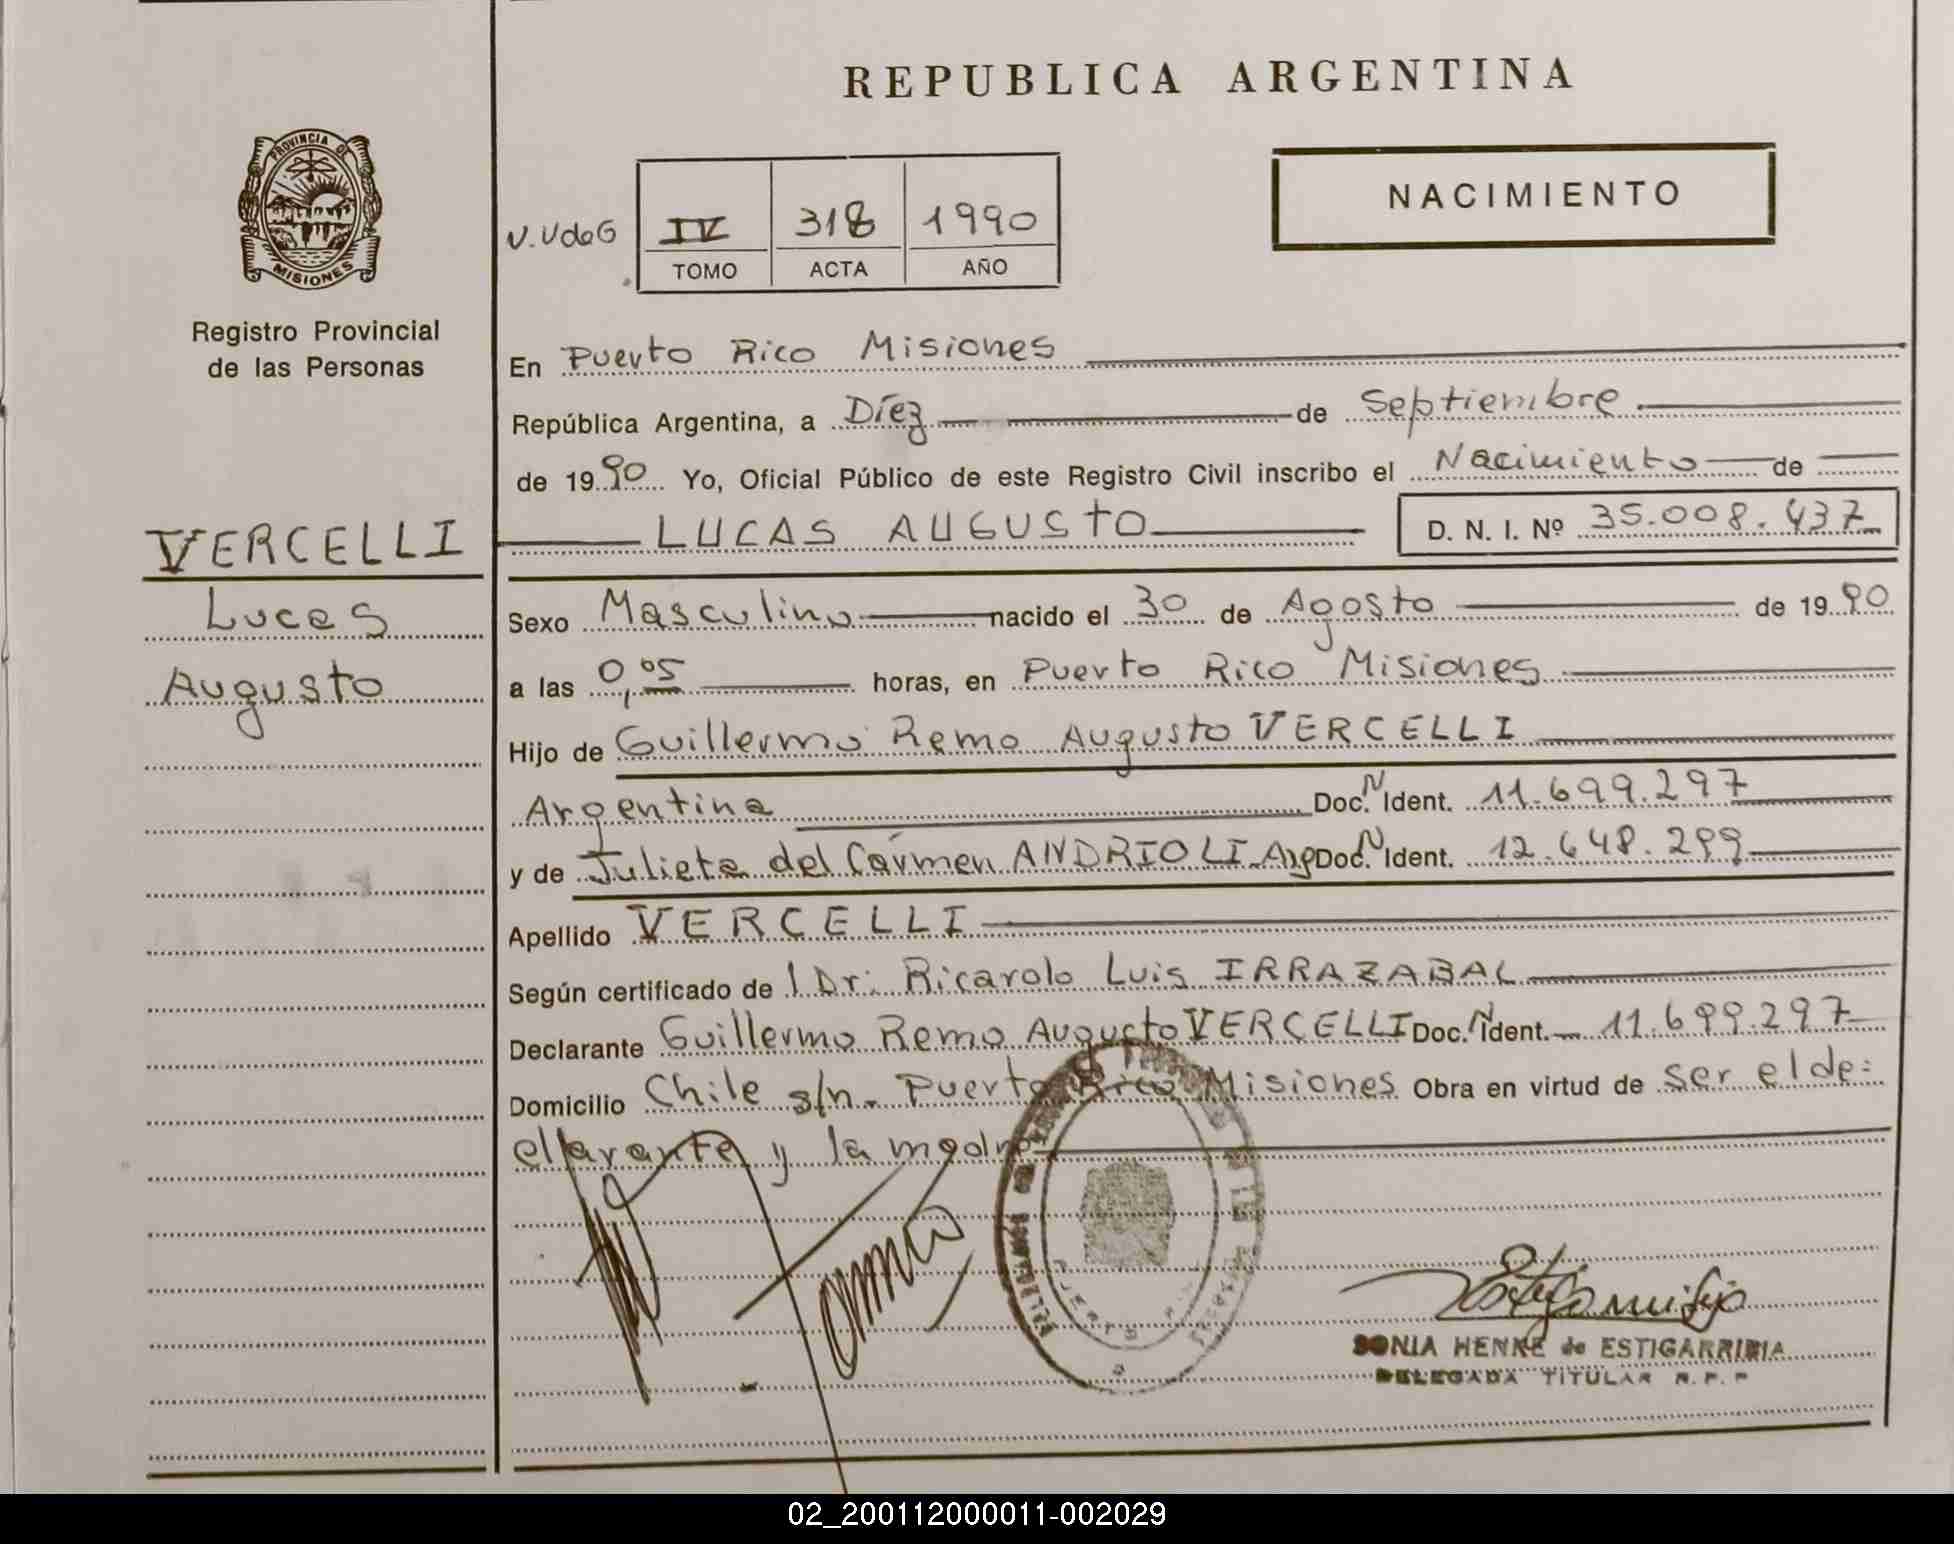 REPUBLICA ARGENTINA
PROVINCIA DE
MISIONES
Registro Provincial
de las Personas
NACIMIENTO
V.VdeG
IV 318 1990
TOMO ACTA AÑO
En Puerto Rico Misiones
República Argentina, a Díez de Septiembre
de 1990 Yo, Oficial Público de este Registro Civil inscribo el Nacimiento de
LUCAS AUGUSTO D. N. I. Nº 35.008.437
VERCELLI
Lucas
Augusto
Sexo Masculino nacido el 30 de Agosto de 1990
a las 0,05 horas, en Puerto Rico Misiones
Hijo de Guillermo Remo Augusto VERCELLI
Argentina Doc. N Ident. 11.699.297
y de Julieta del Cármen ANDRIOLI Arg Doc. N Ident. 12.648.299
Apellido VERCELLI
Según certificado de l Dr. Ricardo Luis IRRAZABAL
Declarante Guillermo Remo Augusto VERCELLI Doc. N Ident. 11.699.297
Domicilio Chile s/n. Puerto Rico Misiones Obra en virtud de ser el de=
cllarante y la madre
SONIA HENKE de ESTIGARRIBIA
DELEGADA TITULAR R. P. P
02_200112000011-002029